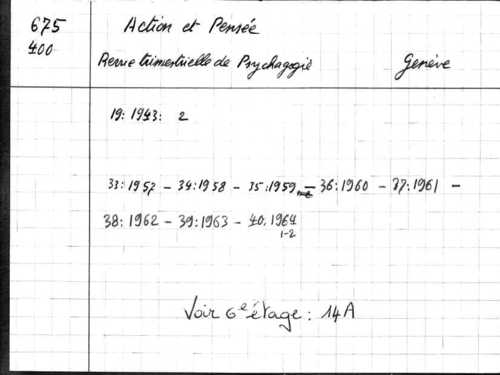 675 Action et Pensée
400 Revue trimestrielle de Psychagogie Genève
19: 1943: 2
33:1957 - 34:1958 - 35:1959 - 36:1960 - 37:1961 -
38: 1962 - 39:1963 - 40:1964
1-2
Voir 6e étage: 14A